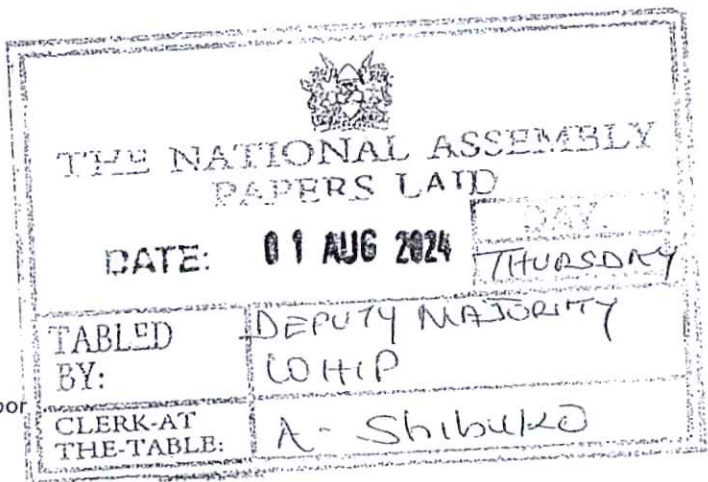 THE NATIONAL ASSEMBLY
PAPERS LAID
DATE: 01 AUG 2024
DAY.
THURSDAY
TABLED
BY:
DEPUTY MAJORITY
WHIP
CLERK-AT
THE-TABLE:
A. Shibuko